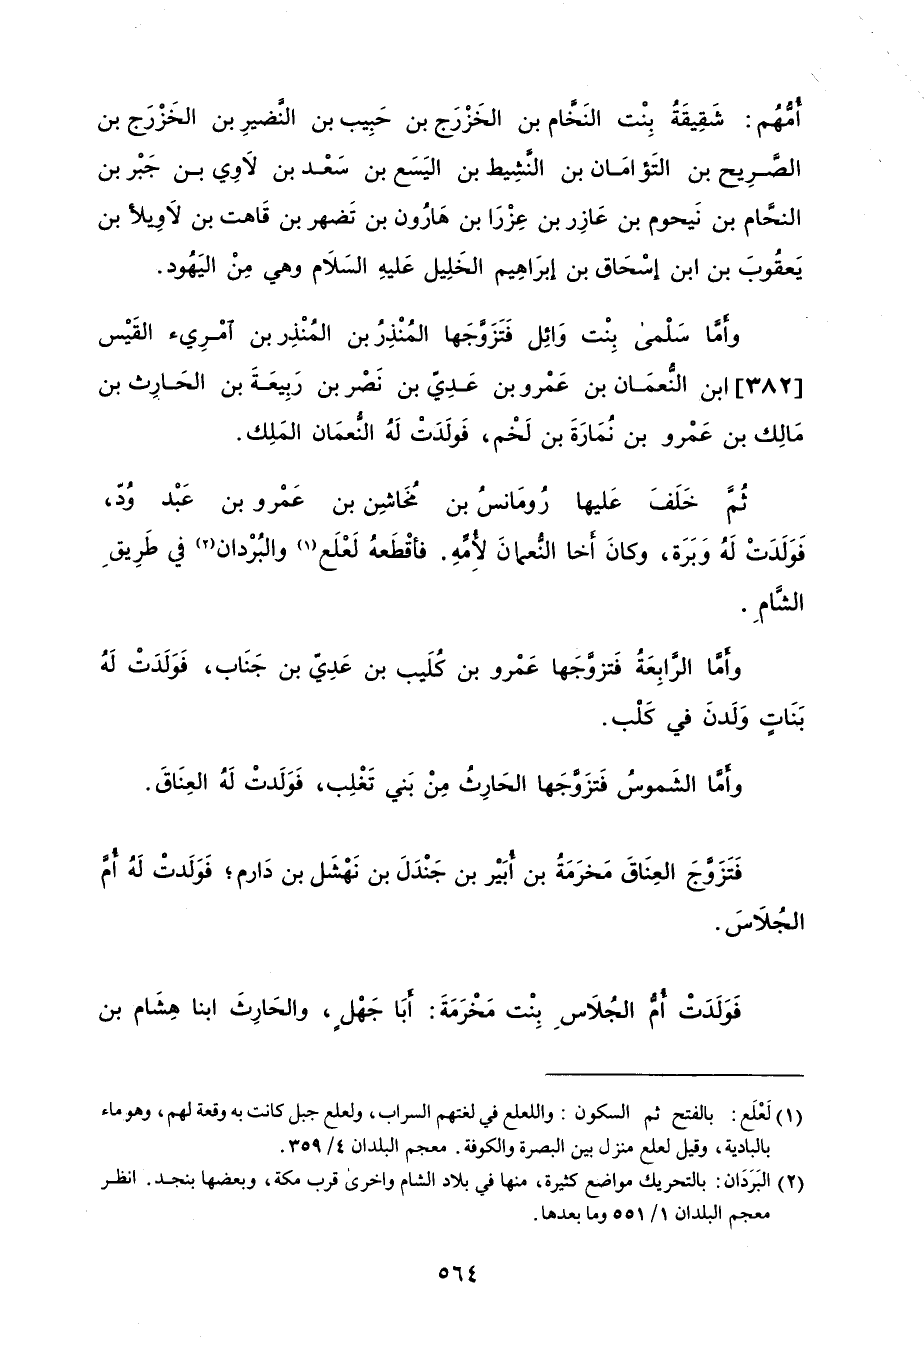 أُمُّهُم: شَقِيقَةُ بِنْت النَخَّام بن الخَزْرَج بن حَبِيب بن النَّضير بن الخَزْرَج بن
الصَّريح بن التَؤامَان بن النَّشِيط بن اليَسَع بن سَعْد بن لاَوي بن جَبْر بن
النحَّام بن نَيحوم بن عَازِر بن عِزْرَا بن هَارُون بن تَضهر بن قَاهت بن لاَويلأ بن
يَعقُوبَ بن ابن إسْحَاق بن إبرَاهيم الخَليل عَليهِ السَلاَم وهي مِنْ اليَهُود.
وأَمَّا سَلْمىٰ بِنْت وَائِل فَتَزَوَّجَها المُنْذِرُ بن المُنْذِر بن آمْرِيء القَيْس
[٣٨٢] ابن النُّعمَان بن عَمْرو بن عَدِيّ بن نَصْر بن رَبيعَة بن الحَارِث بن
مَالِك بن عَمْرو بن نُمَارَةَ بن لَخْم، فَولَدَتْ لَهُ النُّعمَان المَلِك.
ثُمَّ خَلَفَ عَليها رُومَانسُ بن مُخَاشِن بن عَمْرو بن عَبْد وُدّ،
فَوَلَدَتْ لَهُ وَبَرَة، وكانَ أَخا النُّعمانَ لأُمِّهِ. فأقْطَعهُ لَعْلَع(١) والبُرْدان(٢) في طَريقِ
الشَّامِ.
وأَمَّا الرَّابِعَةُ فَتزوَّجها عَمْرو بن كُلَيب بن عَدِيّ بن جَنَاب، فَوَلَدَتْ لَهُ
بَنَاتٍ وَلَدنَ في كَلْب.
وأَمَّا الشَموسُ فَتزَوَّجَها الحَارِثُ مِنْ بَني تَغْلِب، فَوَلَدتْ لَهُ العِنَاقَ.
فَتَزَوَّجَ العِنَاقَ مَخرَمَةُ بن أُبَيْر بن جَنْدَلَ بن نَهْشَل بن دَارم؛ فَوَلَدتْ لَهُ أُمَّ
الجُلاَسَ.
فَوَلَدَتْ أُمُّ الجُلاَسِ بِنْت مَخْرَمَةَ: أَبَا جَهْلٍ، والحَارِثَ ابنا هِشَام بن
(١) لَعْلَع: بالفتح ثم السكون: واللعلع في لغتهم السراب، ولعلع جبل كانت به وقعة لهم، وهو ماء
بالبادية، وقيل لعلع منزل بين البصرة والكوفة. معجم البلدان ٤/ ٣٥٩.
(٢) البَرَدَان: بالتحريك مواضع كثيرة، منها في بلاد الشام واخرىٰ قرب مكة، وبعضها بنجد. انظر
معجم البلدان ١/ ٥٥١ وما بعدها.
٥٦٤